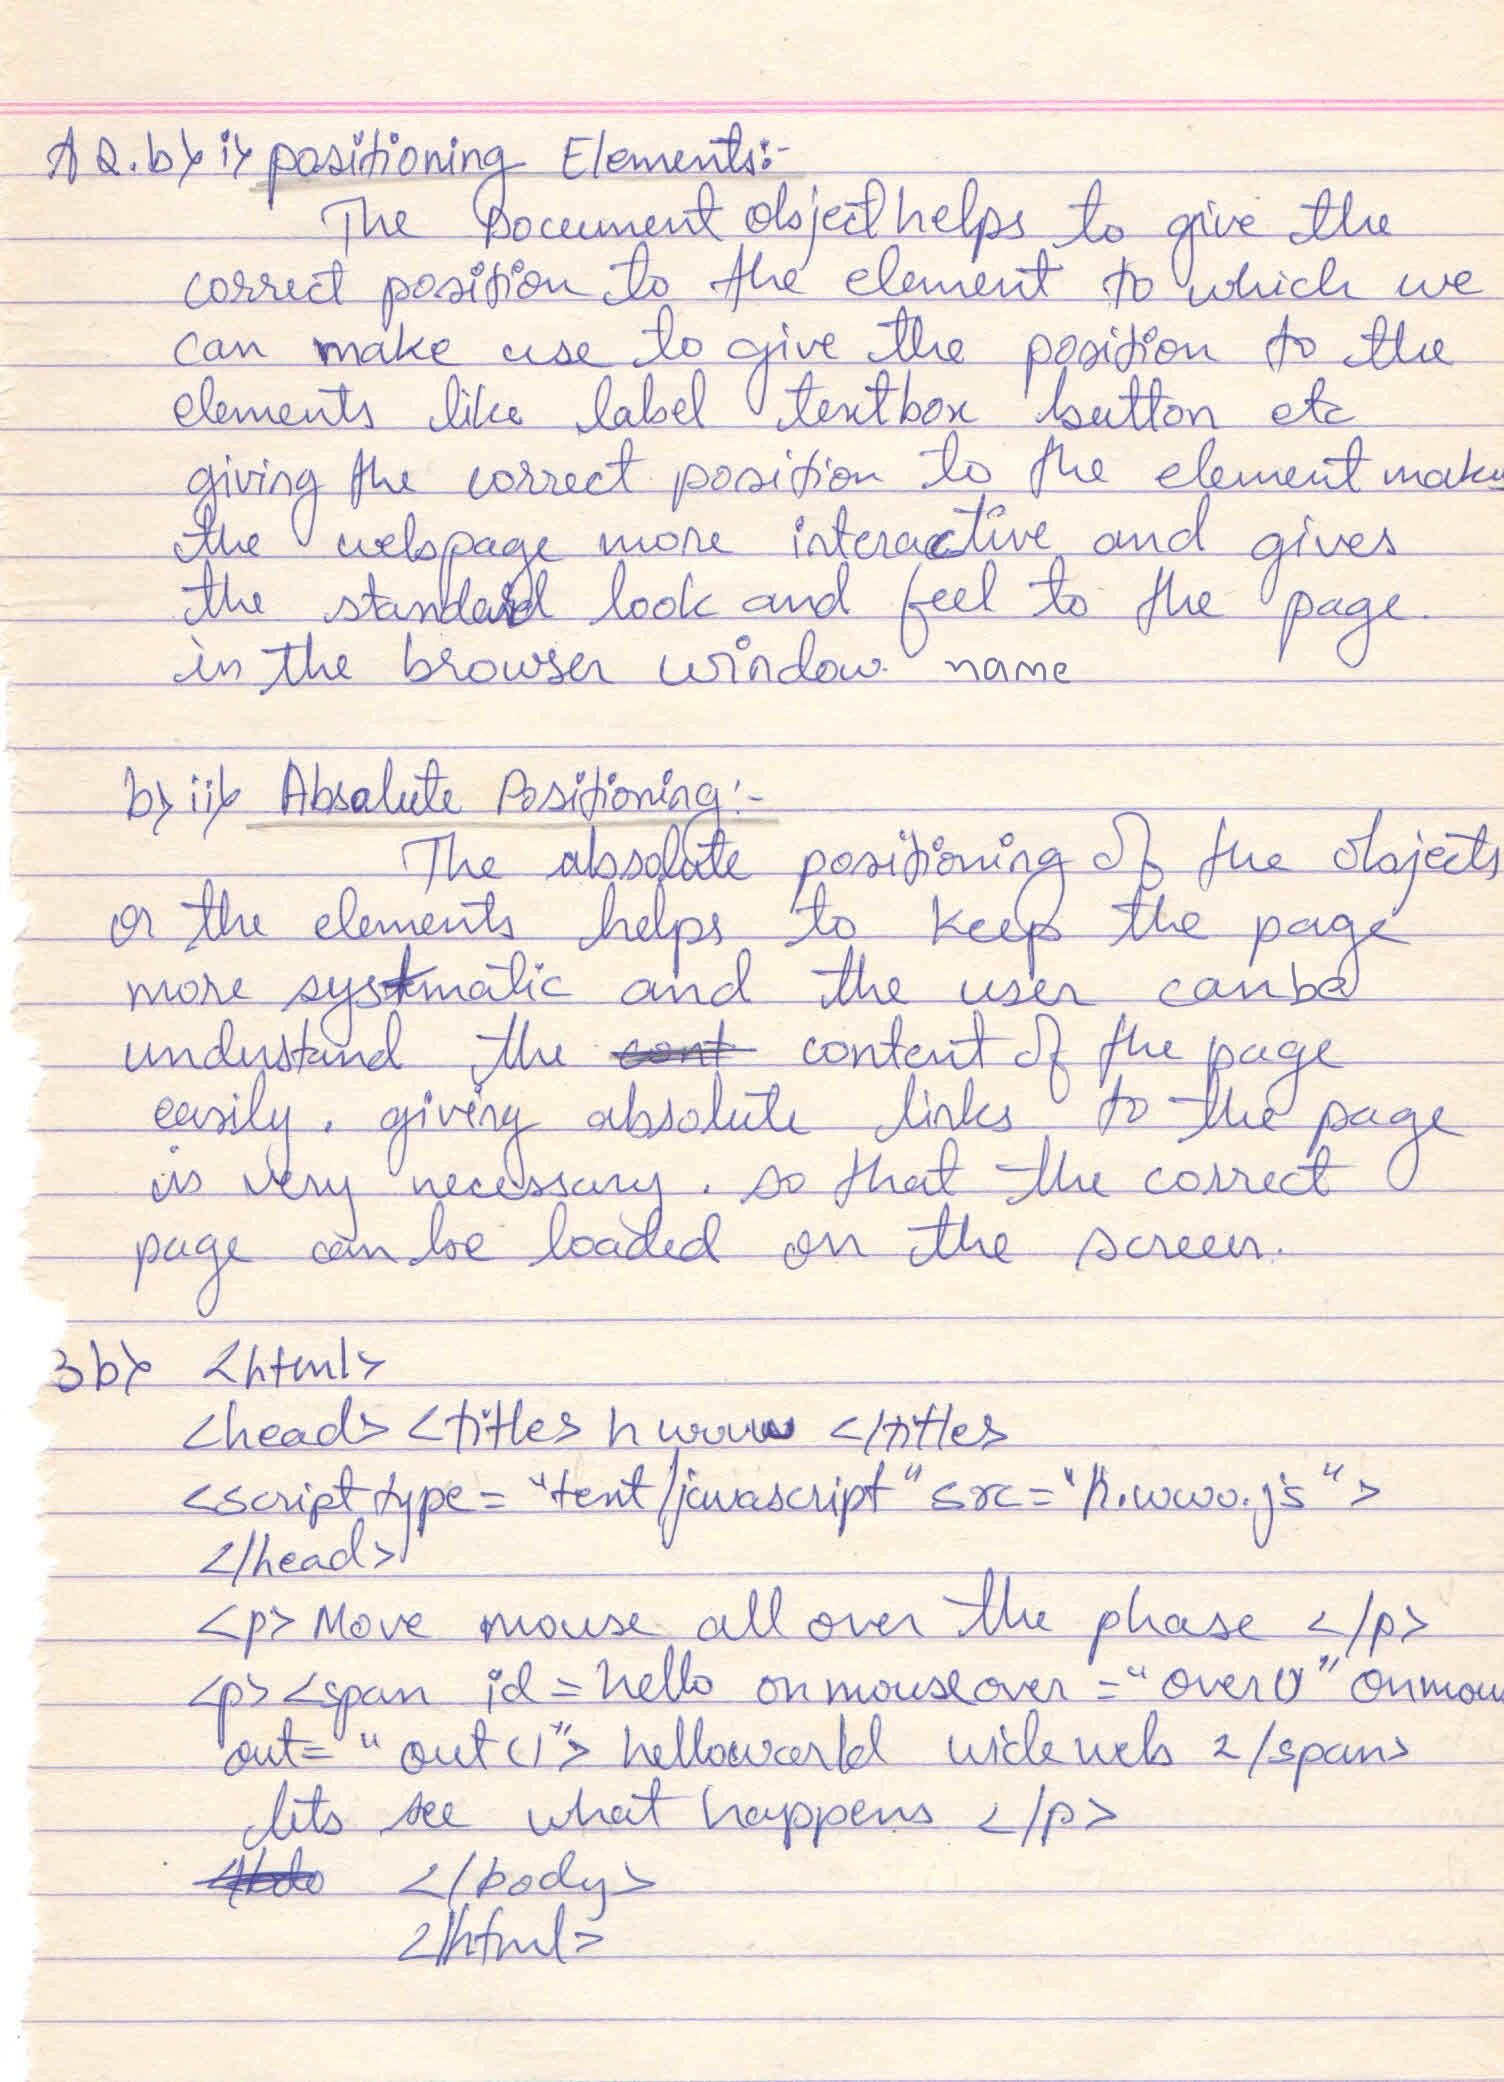 A2.b> i> positioning Elements:-
The Document object helps to give the
correct position to the element to which we
can make use to give the position to the
elements like label textbox button etc
giving the correct position to the element makes
the webpage more interactive and gives
the standard look and feel to the page.
in the browser window. name
b> ii> Absolute Positioning:-
The absolute positioning of the objects
or the elements helps to keep the page
more systmatic and the user canbe
understand the cont content of the page
easily. giving absolute links to the page
is very necessary. so that the correct
page can be loaded on the screen.
3b> <html>
<head> <title> h www </title>
<script type = "text/javascript" src = "h.www.js">
</head>
<p> Move mouse all over the phase </p>
<p> <span id = hello onmouseover = "over()" onmou
out = "out()"> helloworld wide web </span>
lets see what happens </p>
</body>
</html>